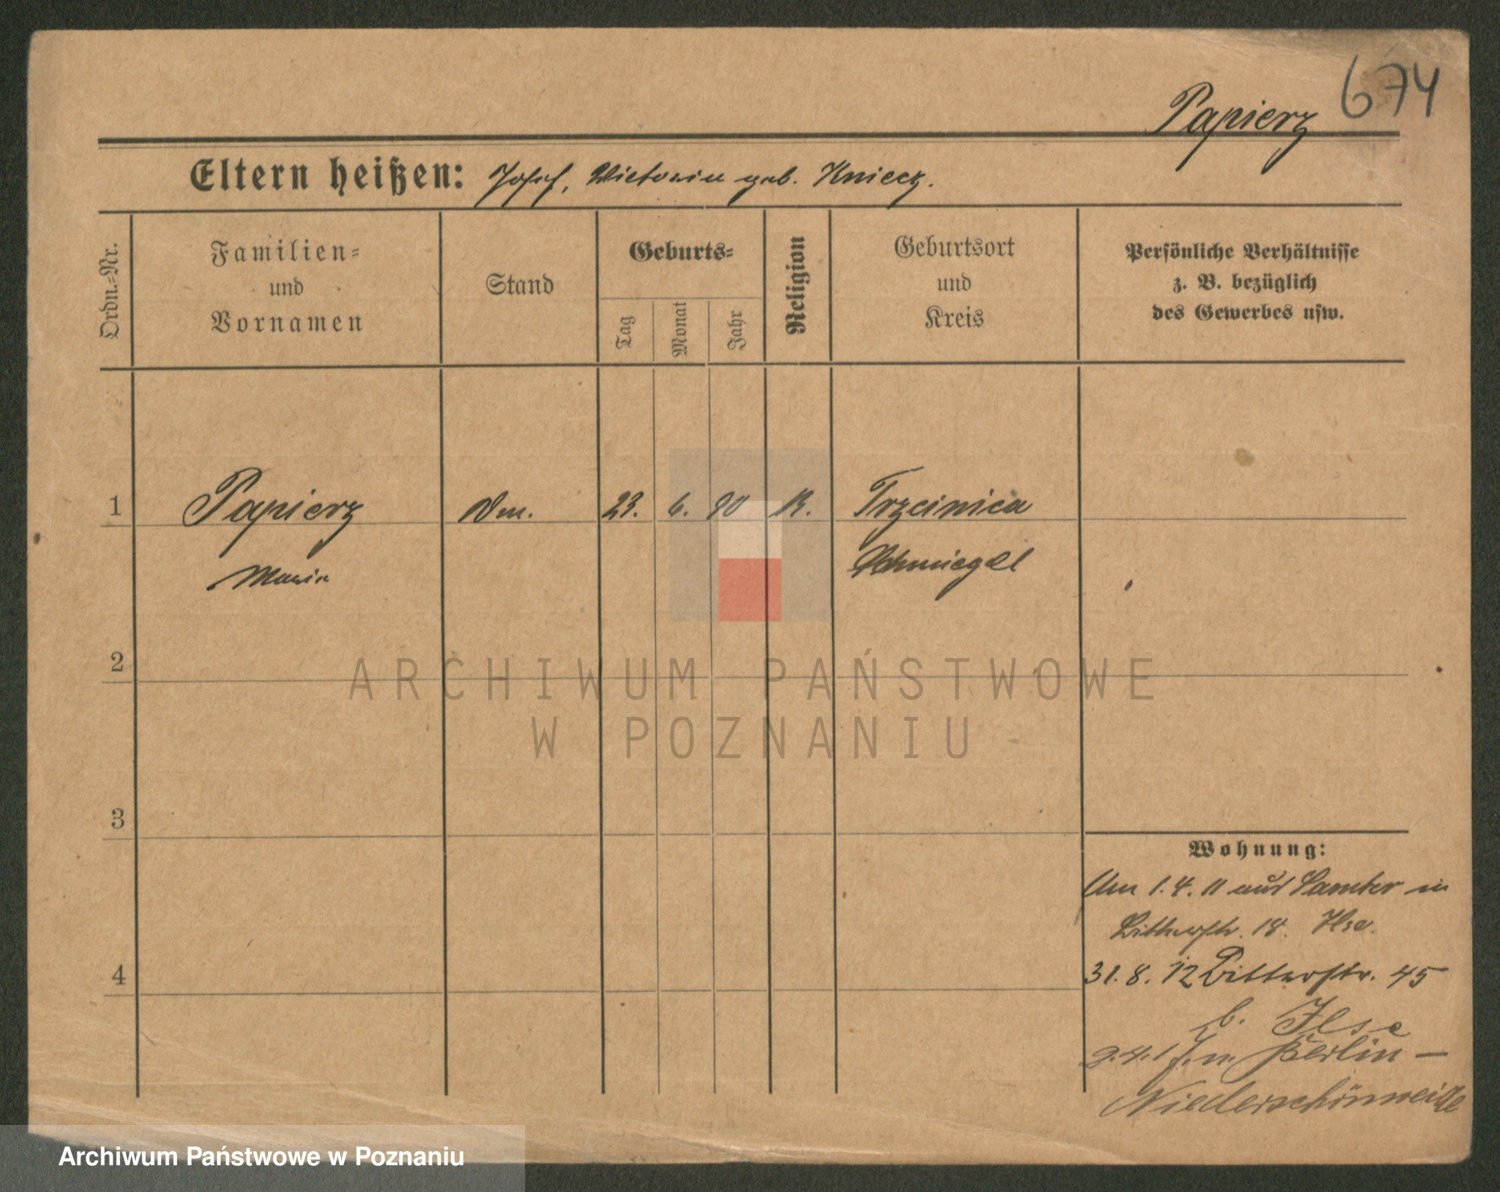 674
Papierz
Eltern heißen: Josef, Victoria geb. Kniecz.
Ordn.-Nr.
Familien-
und
Vornamen
Stand
Geburts-
Tag
Monat
Jahr
Religion
Geburtsort
und
Kreis
Persönliche Verhältnisse
z. B. bezüglich
des Gewerbes usw.
1 Papierz 23. 6. 90 K. Trzcinica
Maria Schmiegel
2
ARCHIWUM PAŃSTWOWE
W POZNANIU
3
4
Wohnung:
Am 1. 4. 11 aus Samter in
Ritterstr. 18. Ilse.
31. 8. 12 Ritterstr. 45
b. Ilse
n. Berlin-
Niederschönweide
Archiwum Państwowe w Poznaniu